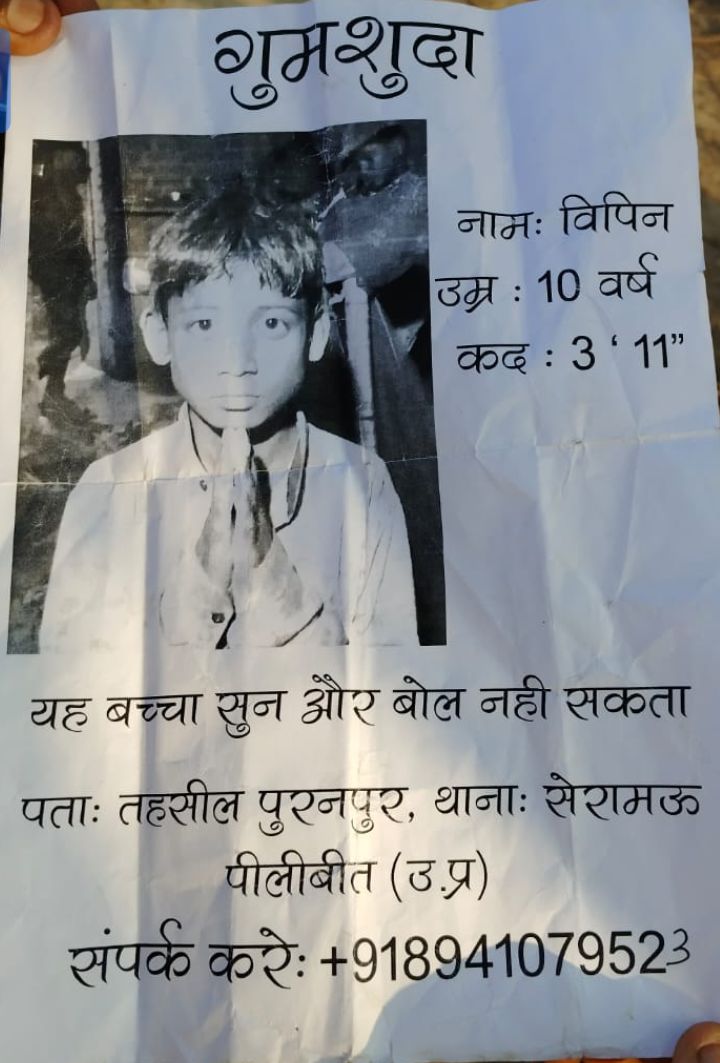 गुमशुदा
नामः विपिन
उम्र : 10 वर्ष
कद : 3 ' 11”
यह बच्चा सुन और बोल नही सकता
पताः तहसील पुरनपुर, थानाः सेरामऊ
पीलीबीत (उ.प्र)
संपर्क करेः +918941079523